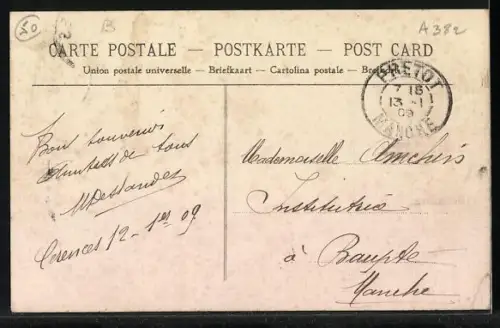 50
B
A382
CARTE POSTALE — POSTKARTE — POST CARD
Union postale universelle — Briefkaart — Cartolina postale —
PRETOT
7 15
13 -1
09
MANCHE
Bons souvenirs
de tous
MDeslandes
12-1er 09
Mademoiselle
Institutrice
à Baupte
Manche